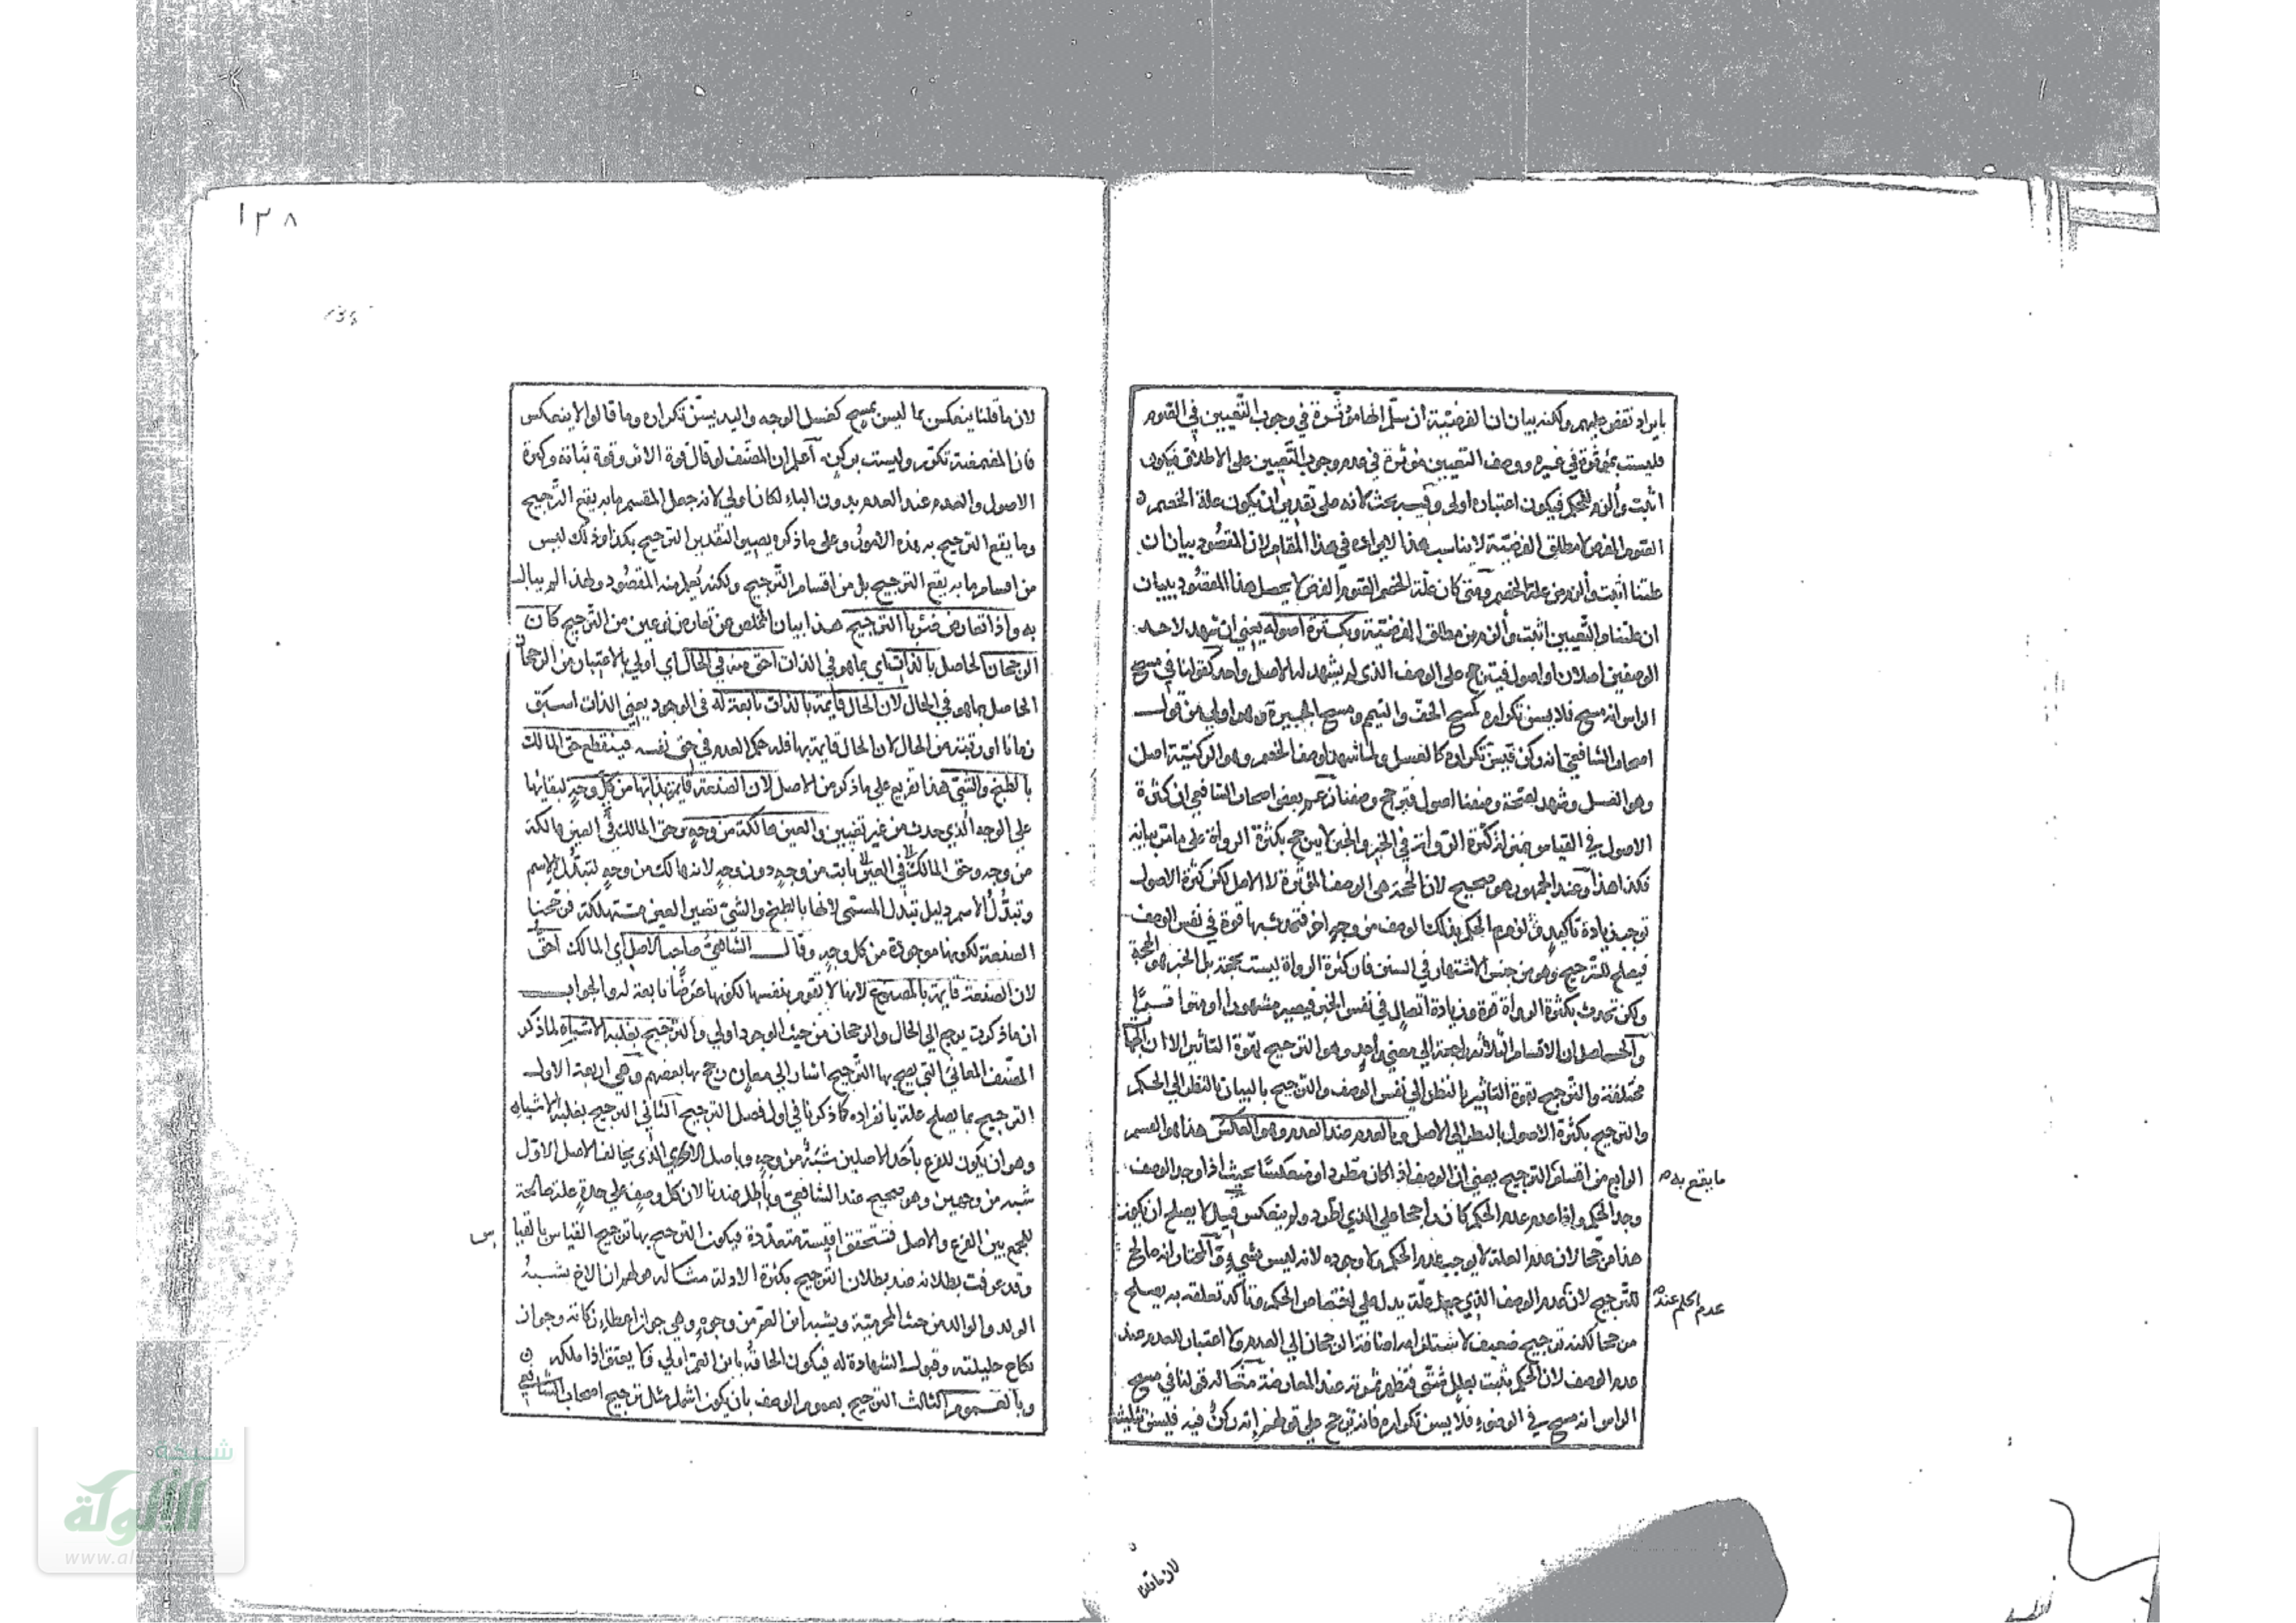 بايراد نقض عليهم ولكنه بيان ان الفرضيّة ان سلّم انها مؤثّرة في وجوب التّعيين في الصّوم
فليست بمؤثّرة في غيره ووصف التعيين مؤثرة في عدم وجوب التّعيين على الاطلاق فيكون
اثبت وألزم للحكم فيكون اعتباره اولى وفيه بحث لانه على تقدير ان يكون علة الخصم
الصوم الفرض لا مطلق الفرضيّة لا يناسب هذا الايراد في هذا المقام لان المقصود بيان ان
علتنا اثبت وألزم من علة الخصم ومتى كان علّة الخصم الصوم الفرض لا يحصل هذا المقصود ببيان
ان علتنا والتّعيين اثبت وألزم من مطلق الفرضيّة وبكثرة اصوله يعني ان شهد لاحد
الوصفين اصلان او اصول فيترجح على الوصف الذي لم يشهد له الا اصل واحد كقولنا في مسح
الراس انه مسح فلا يسن تكراره كمسح الخفّ والتيمم ومسح الجبيرة وهو اولى من قول
اصحاب الشافعيّ انه ركن فيسنّ تكراره كالغسل ولما شهد لوصف الخصم وهو الركنيّة اصل
وهو الغسل وشهد لصحّة وصفنا اصول فترجح وصفنا زعم بعض اصحاب الشافعي ان كثرة
الاصول في القياس بمنزلة كثرة الرواة في الخبر والخبر لا يترجح بكثرة الرواة على ما مرّ بيانه
فكذا هذا وعند الجمهور هو صحيح لان الحجة هي الوصف المؤثرة لا الاصل لكن كثرة الاصول
توجب زيادة تأكيد ولزوم الحكم بذلك الوصف من وجه اخر فتحدث بها قوة في نفس الوصف
فيصلح للترجيح وهو من جنس الاشتهار في السنن فان كثرة الرواة ليست بحجة بل الخبر هو الحجة
ولكن تحدث بكثرة الرواة قوة وزيادة اتصال في نفس الخبر فيصير مشهورا او متواترا
والحاصل ان الاقسام الثلاثة راجعة الى معنى واحد وهو الترجيح بقوة التأثير الا ان الجهات
مختلفة والترجيح بقوة التأثير بالنظر الى نفس الوصف والترجيح بالبيان بالنظر الى الحكم
والترجيح بكثرة الاصول بالنظر الى الاصل وبالعدم عند العدم وهو العكس هذا هو القسم
الرابع من اقسام الترجيح يعني ان الوصف اذا كان مطردا ومنعكسًا بحيث اذا وجد الوصف
ما يقع به
وجد الحكم واذا عدم عدم الحكم كان راجحا على الذي اطرد ولم ينعكس قيل لا يصلح ان يكون
هذا مرجّحا لان عدم العلة لا يوجب عدم الحكم ولا وجوده لانه ليس بشيء والمختار انه صالح
للترجيح لان عدم الوصف الذي جعل علّة يدل على اختصاص الحكم وتأكد تعلقه به يصلح
عدم الحكم عند
مرجحا لكنه ترجيح ضعيف لاستلزامه اضافة الرجحان الى العدم ولا اعتبار للعدم عند
عدم الوصف لان الحكم يثبت بعلل شتى فتظهر ثمرته عند المعارضة مثاله قولنا في مسح
الراس انه مسح في الوضوء فلا يسن تكراره فانه ترجح على قولهم انه ركن فيه فيسن تثليثه
لان ما قلنا
١٢٨
لان ما قلنا ينعكس بما ليس بمسح كغسل الوجه واليد يسنّ تكراره وما قالوا لا ينعكس
فان المضمضة تكرر وليست بركن اعلم ان المصنّف لو قال قوة الاثر وقوة ثباته وكثرة
الاصول والعدم عند العدم بدون الباء لكان اولى لانه جعل المقسم ما به يقع التّرجيح
وما يقع الترجيح به هذه الامور وعلى ما ذكره يصير التقدير الترجيح بكذا وذلك ليس
من اقسام ما به يقع الترجيح بل من اقسام التّرجيح ولكنه يُعلم منه المقصود ولهذا لم يبال
به واذا تعارض ضربا الترجيح هذا بيان المخلص عن تعارض نوعين من الترجيح كان
الرجحان الحاصل بالذات اي بما هو في الذات احق منه في الحال اي اولى بالاعتبار من الرجحان
الحاصل بما هو في الحال لان الحال قايمة بالذات تابعة له في الوجود يعني الذات اسبق
زمانا او رتبة من الحال لان الحال قايمة بها فله حكم العدم في حق نفسه فينقطع حق المالك
بالطبخ والشيّ هذا تفريع على ما ذكر من الاصل لان الصنعة قايمة بذاتها من كل وجه لبقائها
على الوجه الذي حدث من غير تغيير والعين هالكة من وجه وحق المالك في العين هالكة
من وجه وحق المالك في العين ثابت من وجه دون وجه لانه هالك من وجه لتبدّل الاسم
وتبدّل الاسم دليل تبدل المسمى لانها بالطبخ والشيّ تصير العين مستهلكة فرجّحنا
الصنعة لكونها موجودة من كل وجه وقال الشافعيّ صاحب الاصل اي المالك احقّ
لان الصنعة قايمة بالمصنوع لانها لا تقوم بنفسها لكونها عرضًا تابعة له والجواب
ان ما ذكرت يرجع الى الحال والرجحان من حيث الوجود اولى والترجيح بغلبة الاشباه لما ذكر
المصنف المعاني التي يصح بها الترجيح اشار الى معان رجح بها بعضهم وهي اربعة الاول
الترجيح بما يصلح علة بانفراده كما ذكرنا في اول فصل الترجيح الثاني الترجيح بغلبة الاشباه
وهو ان يكون للفرع بأحد الاصلين شبهٌ من وجه وبالاصل الاخر الذي يخالف الاصل الاول
شبه من وجهين وهو صحيح عند الشافعي وباطل عندنا لان كل وصف على حدة علة صالحة
للجمع بين الفرع والاصل فتتحقق اقيسة متعدّدة فيكون الترجيح بها ترجيح القياس بالقيا
س
وقد عرفت بطلانه عند بطلان الترجيح بكثرة الادلة مثاله قولهم ان الاخ يشبه
الولد والوالد من حيث المحرميّة ويشبه ابن العم من وجوه وهي جواز اعطاء زكاته وجواز
نكاح حليلته وقبول الشهادة له فيكون الحاقه بابن العم اولى فلا يعتق اذا ملكه
وبالعموم الثالث الترجيح بعموم الوصف بان يكون اشمل مثال ترجيح اصحاب الشافعي
شبكة
الألوكة